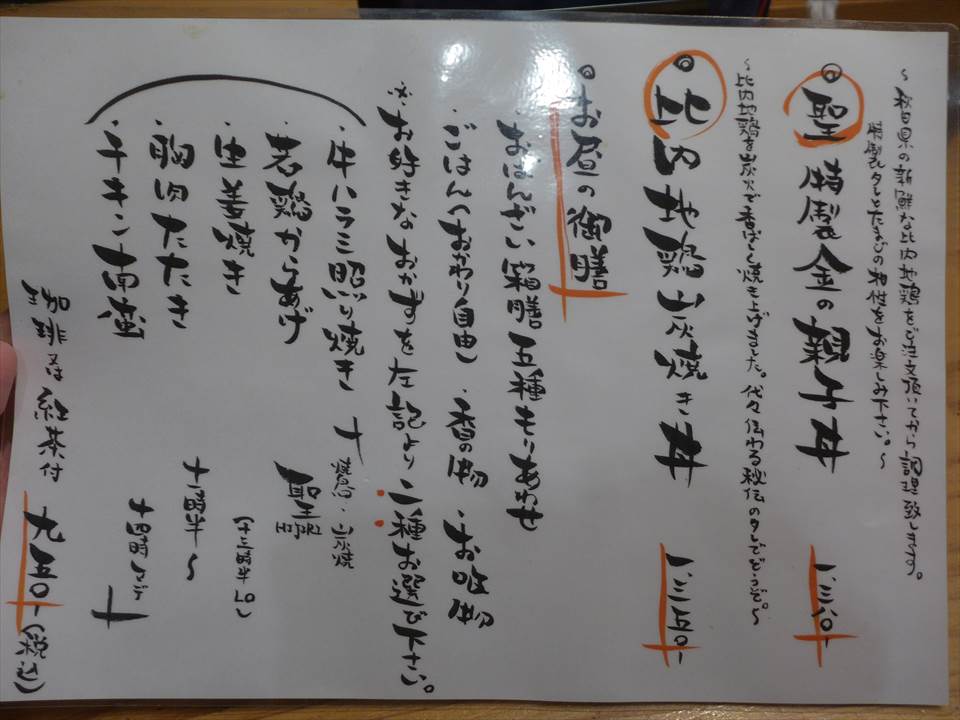 ～秋田県の新鮮な比内地鶏をご注文頂いてから調理致します。
特製タレとたまごの相性をお楽しみ下さい。～
◎聖 特製金の親子丼 一、三八〇-
～比内地鶏を炭火で香ばしく焼き上げました。代々伝わる秘伝のタレでどうぞ。～
◎比内地鶏炭焼き丼 一、三五〇-
◎お昼の御膳
おばんざい箱膳 五種もりあわせ
・ごはん(おかわり自由) ・香の物 ・お吸物
※お好きなおかずを左記より二種お選び下さい。
・牛ハラミ照り焼き
・若鶏からあげ
・生姜焼き
・胸肉たたき
・チキン南蛮
珈琲又は紅茶付 九五〇-(税込)
焼鳥・炭焼
聖
(十三時半LO)
十一時半～
十四時マデ